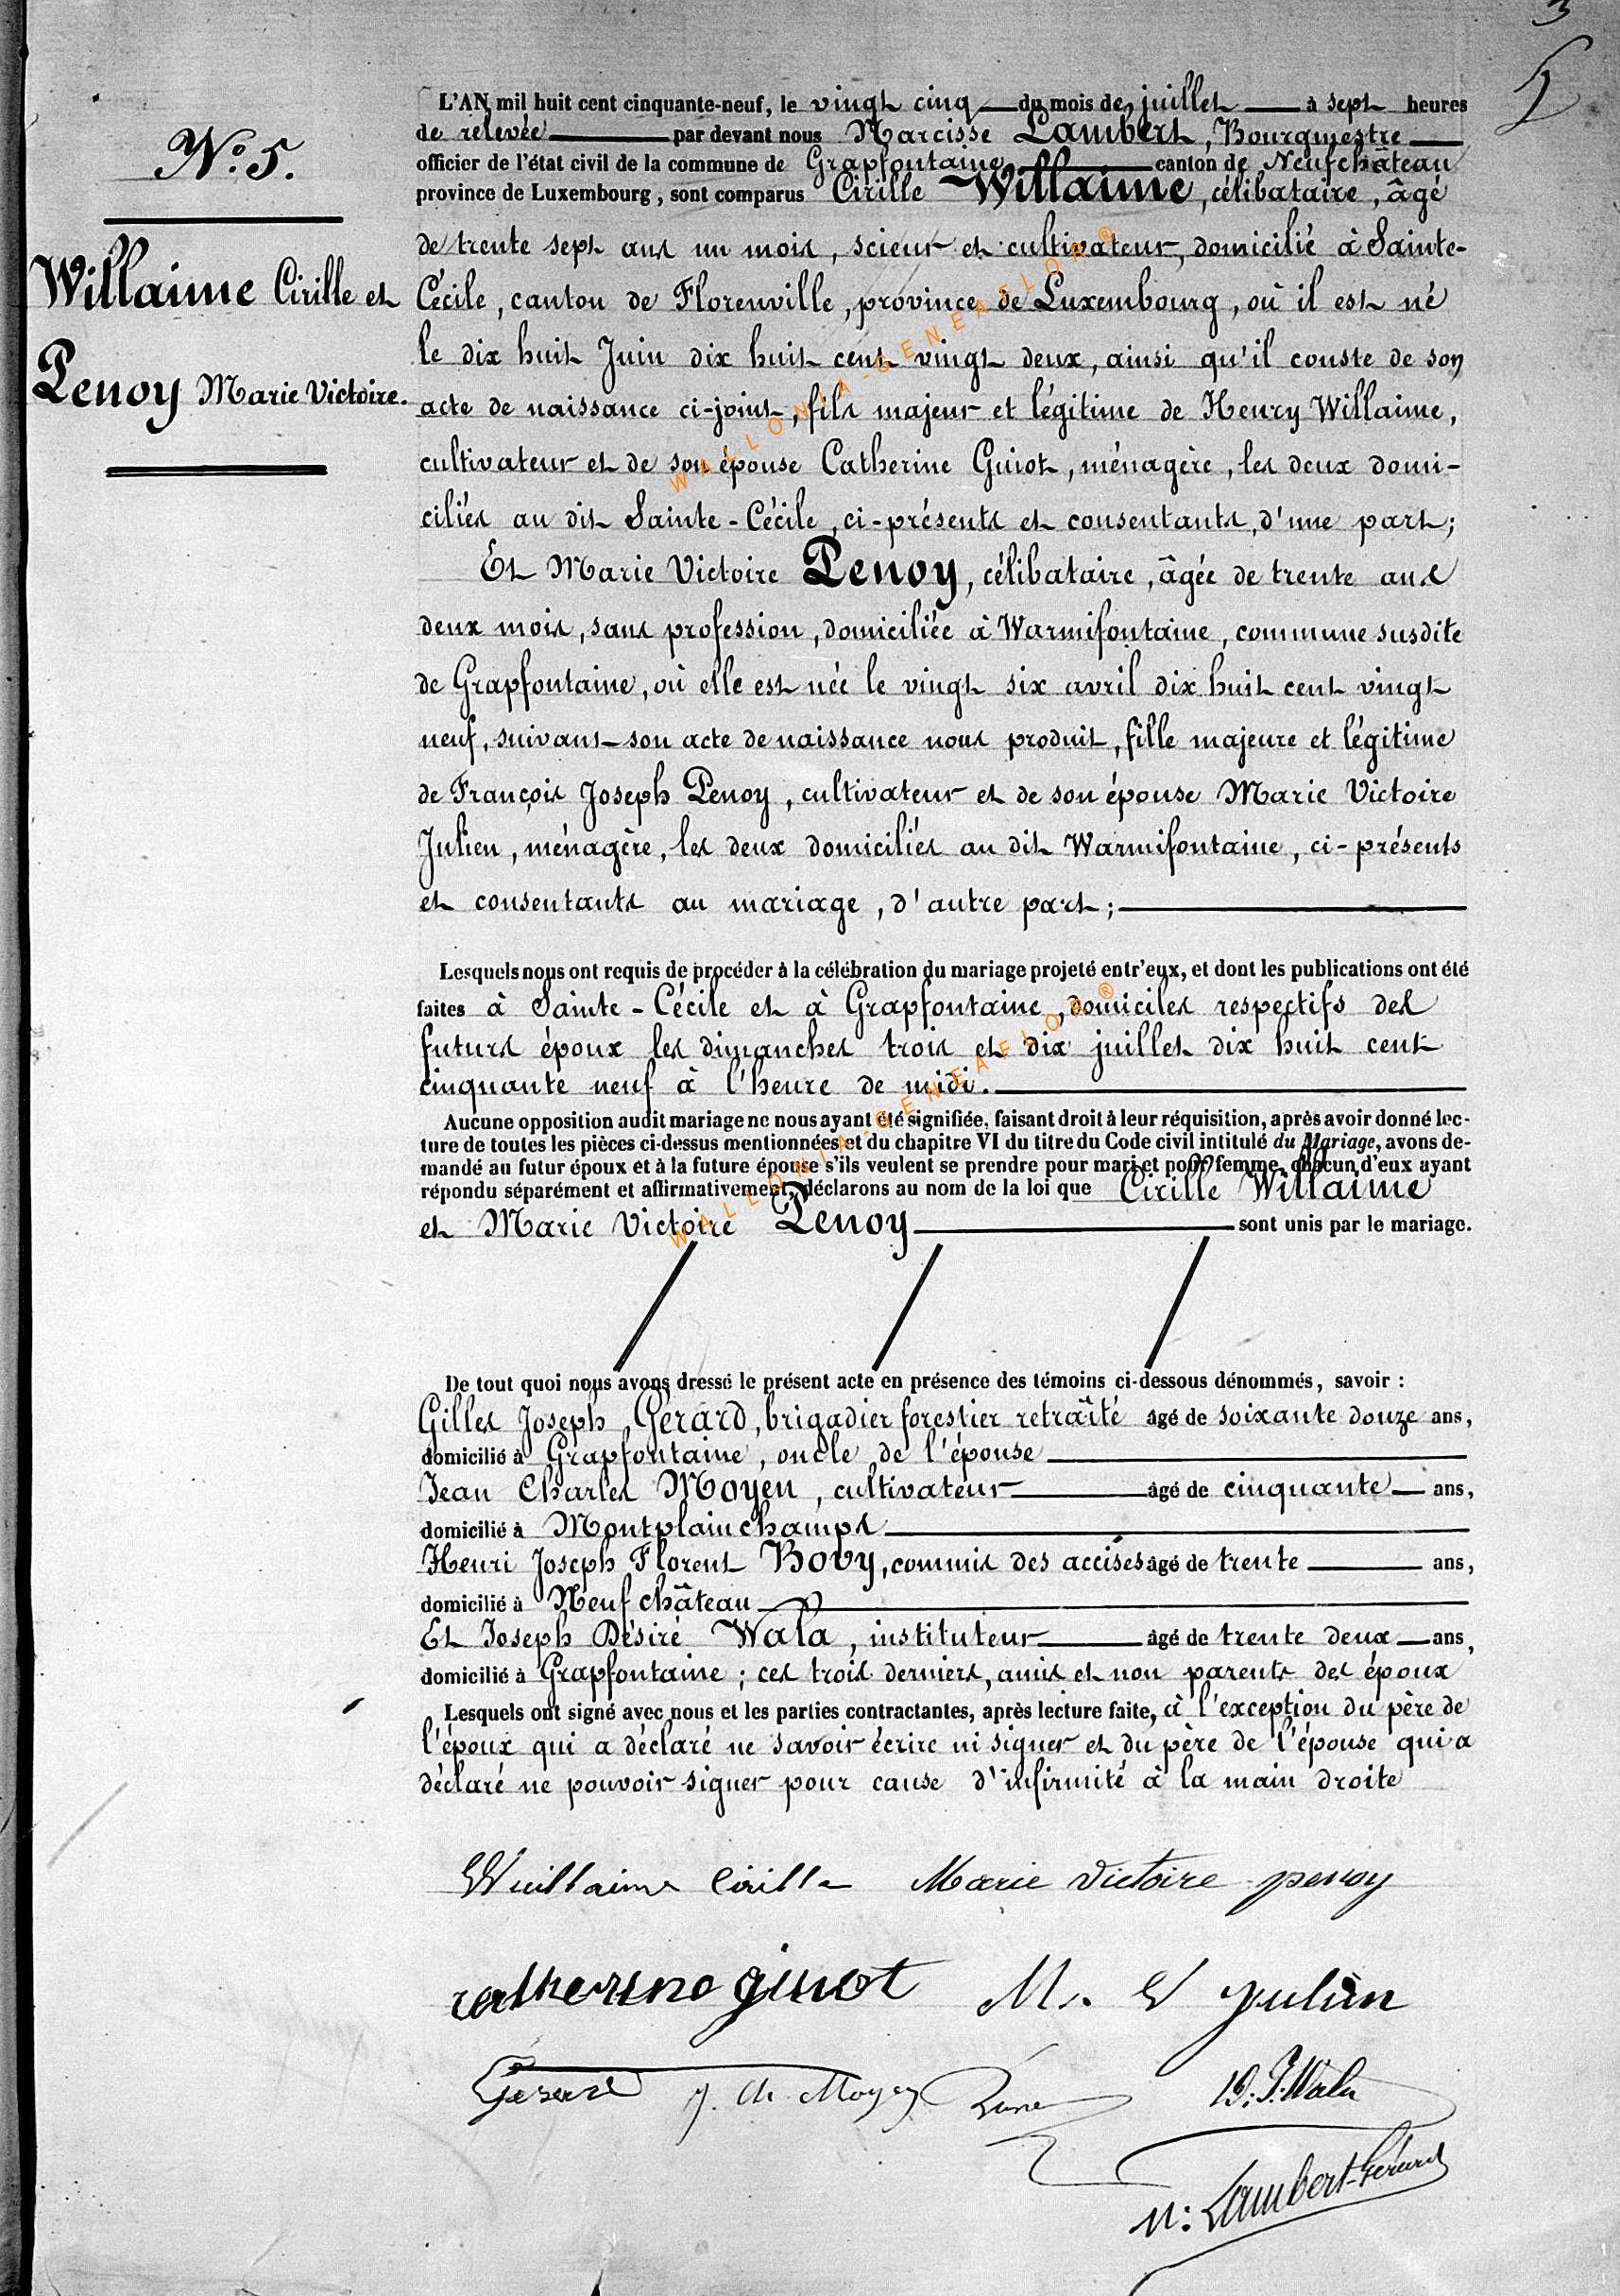 3
N.o 5.
Willaime Cirille et
Penoy Marie Victoire.
L'AN mil huit cent cinquante-neuf, le vingt cinq du mois de juillet à sept heures
de relevée par devant nous Narcisse Lambert, Bourgmestre
officier de l'état civil de la commune de Grapfontaine canton de Neufchâteau
province de Luxembourg, sont comparus Cirille Willaime, célibataire, âgé
de trente sept ans un mois, scieur et cultivateur, domicilié à Sainte-
Cécile, canton de Florenville, province de Luxembourg, où il est né
le dix huit Juin dix huit cent vingt deux, ainsi qu'il conste de son
acte de naissance ci-joint, fils majeur et légitime de Henry Willaime,
cultivateur et de son épouse Catherine Guiot, ménagère, les deux domi-
ciliés au dit Sainte-Cécile, ci-présents et consentants, d'une part;
Et Marie Victoire Penoy, célibataire, âgée de trente ans
deux mois, sans profession, domiciliée à Warmifontaine, commune susdite
de Grapfontaine, où elle est née le vingt six avril dix huit cent vingt
neuf, suivant son acte de naissance nous produit, fille majeure et légitime
de François Joseph Penoy, cultivateur et de son épouse Marie Victoire
Julien, ménagère, les deux domiciliés au dit Warmifontaine, ci-présents
et consentants au mariage, d'autre part;
Lesquels nous ont requis de procéder à la célébration du mariage projeté entr'eux, et dont les publications ont été
faites à Sainte-Cécile et à Grapfontaine, domiciles respectifs des
futurs époux les dimanches trois et dix juillet dix huit cent
cinquante neuf à l'heure de midi.
Aucune opposition audit mariage ne nous ayant été signifiée, faisant droit à leur réquisition, après avoir donné lec-
ture de toutes les pièces ci-dessus mentionnées et du chapitre VI du titre du Code civil intitulé du Mariage, avons de-
mandé au futur époux et à la future épouse s'ils veulent se prendre pour mari et pour femme, chacun d'eux ayant
répondu séparément et affirmativement, déclarons au nom de la loi que Cirille Willaime
et Marie Victoire Penoy sont unis par le mariage.
De tout quoi nous avons dressé le présent acte en présence des témoins ci-dessous dénommés, savoir :
Gilles Joseph Gérard, brigadier forestier retraîté âgé de soixante douze ans,
domicilié à Grapfontaine, oncle de l'épouse
Jean Charles Moyen, cultivateur âgé de cinquante ans,
domicilié à Montplainchamps
Henri Joseph Florent Bovy, commis des accises âgé de trente ans,
domicilié à Neufchâteau
Et Joseph Désiré Wala, instituteur âgé de trente deux ans,
domicilié à Grapfontaine; ces trois derniers, amis et non parents des époux
Lesquels ont signé avec nous et les parties contractantes, après lecture faite, à l'exception du père de
l'époux qui a déclaré ne savoir écrire ni signer et du père de l'épouse qui a
déclaré ne pouvoir signer pour cause d'infirmité à la main droite
Wuillaime Cirille Marie Victoire penoy
catherine guiot M. V julien
Gerard J. Ch. Moyen D. J. Wala
N: Lambert-Gérard
WALLONIA-GENEAFLOR®
WALLONIA-GENEAFLOR®